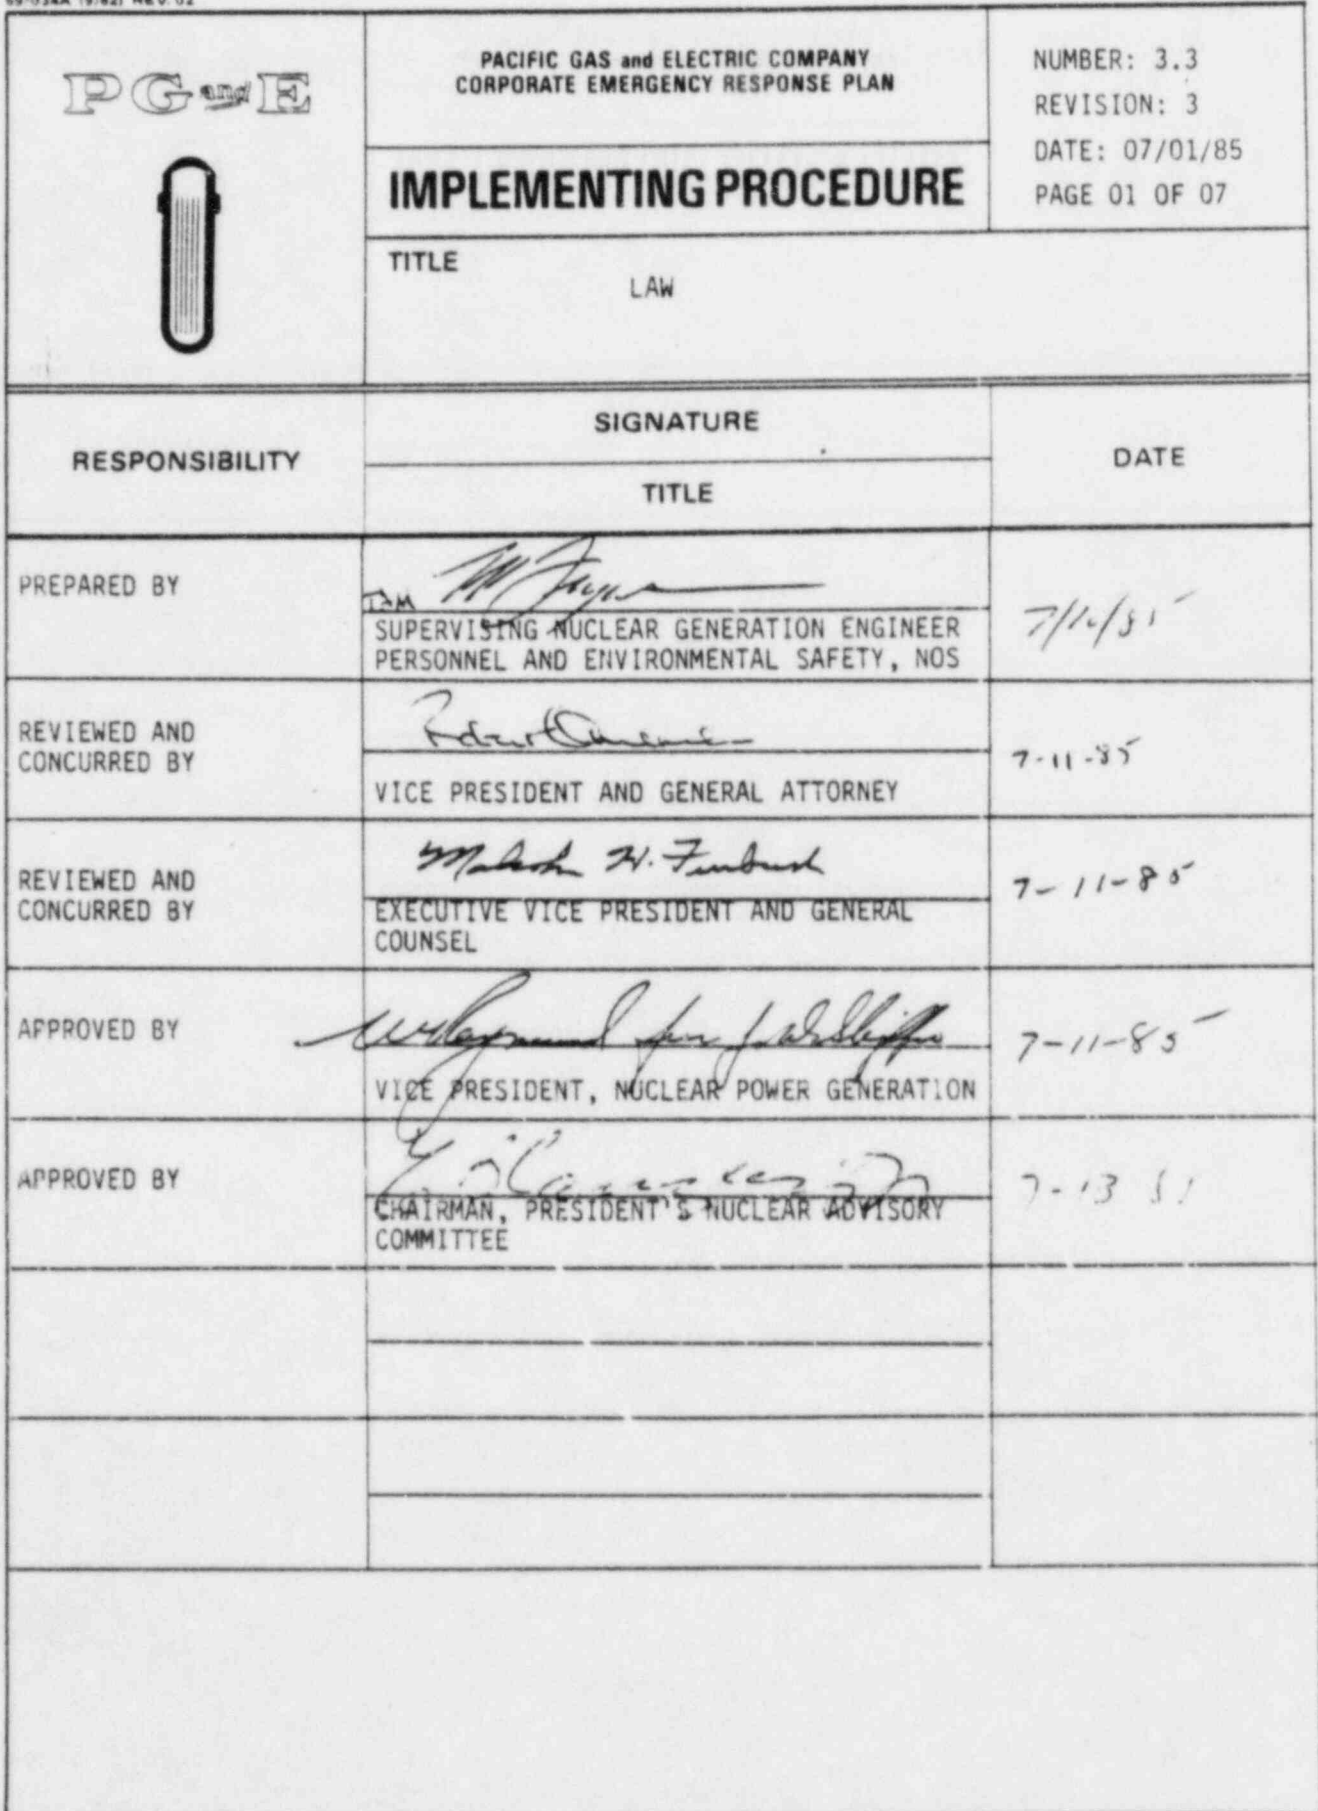 PG and E
PACIFIC GAS and ELECTRIC COMPANY
CORPORATE EMERGENCY RESPONSE PLAN
IMPLEMENTING PROCEDURE
NUMBER: 3.3
REVISION: 3
DATE: 07/01/85
PAGE 01 OF 07
TITLE
LAW
RESPONSIBILITY
SIGNATURE
TITLE
DATE
PREPARED BY
SUPERVISING NUCLEAR GENERATION ENGINEER
PERSONNEL AND ENVIRONMENTAL SAFETY, NOS
REVIEWED AND
CONCURRED BY
VICE PRESIDENT AND GENERAL ATTORNEY
7-11-85
REVIEWED AND
CONCURRED BY
EXECUTIVE VICE PRESIDENT AND GENERAL
COUNSEL
7-11-85
APPROVED BY
VICE PRESIDENT, NUCLEAR POWER GENERATION
7-11-85
APPROVED BY
CHAIRMAN, PRESIDENT'S NUCLEAR ADVISORY
COMMITTEE